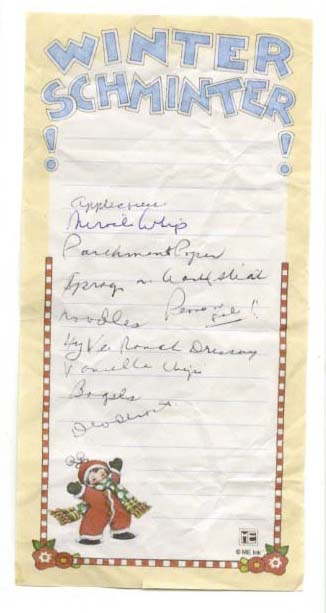 WINTER
SCHMINTER!
Applesauce
Miracle Whip
Parchment Paper
Spray
noodles
HyVee Ranch Dressing
Vanilla Chips
Bagels
Deodorant
ME
© ME Ink